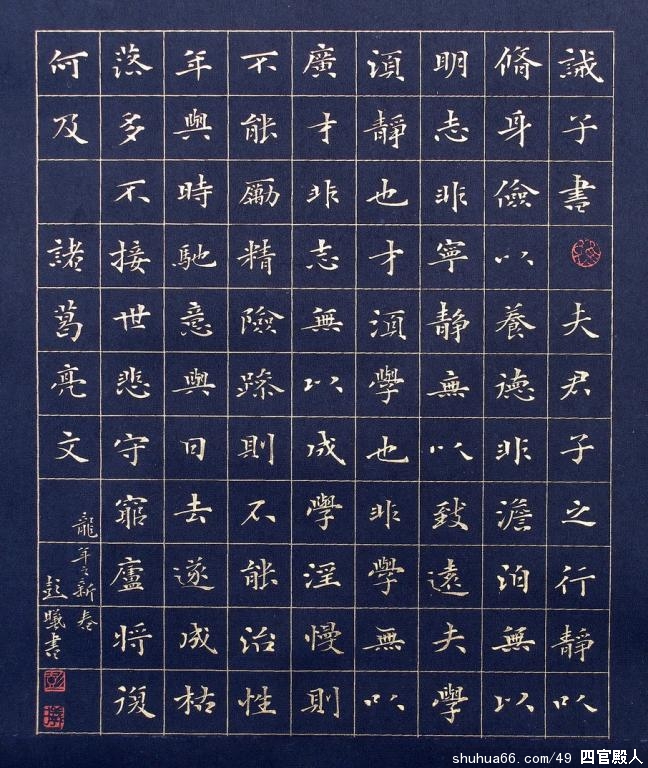 誡子書 夫君子之行靜以
脩身儉以養德非澹泊無以
明志非寧靜無以致遠夫學
須靜也才須學也非學無以
廣才非志無以成學淫慢則
不能勵精險躁則不能治性
年與時馳意與日去遂成枯
落多不接世悲守窮廬將復
何及 諸葛亮文
龍年之新春
彭曦書
shuhua66.com/49 四官殿人